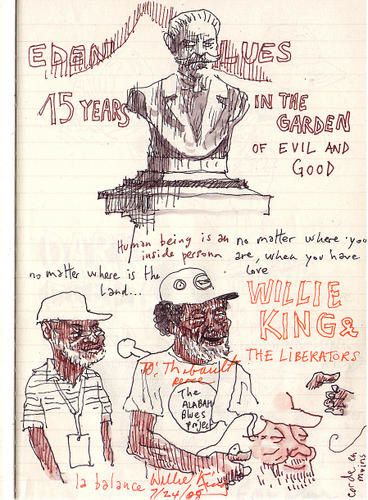 EDEN BLUES
15 YEARS IN THE
GARDEN
OF EVIL AND
GOOD
Human being is an no matter where you
inside persona are, when you have
no matter where is the love
band...
WILLIE
KING &
THE LIBERATORS
To: Thibault
peace
The
ALABAMA
Blues
Project
la balance Willie King
7/24/08
corde en
moins